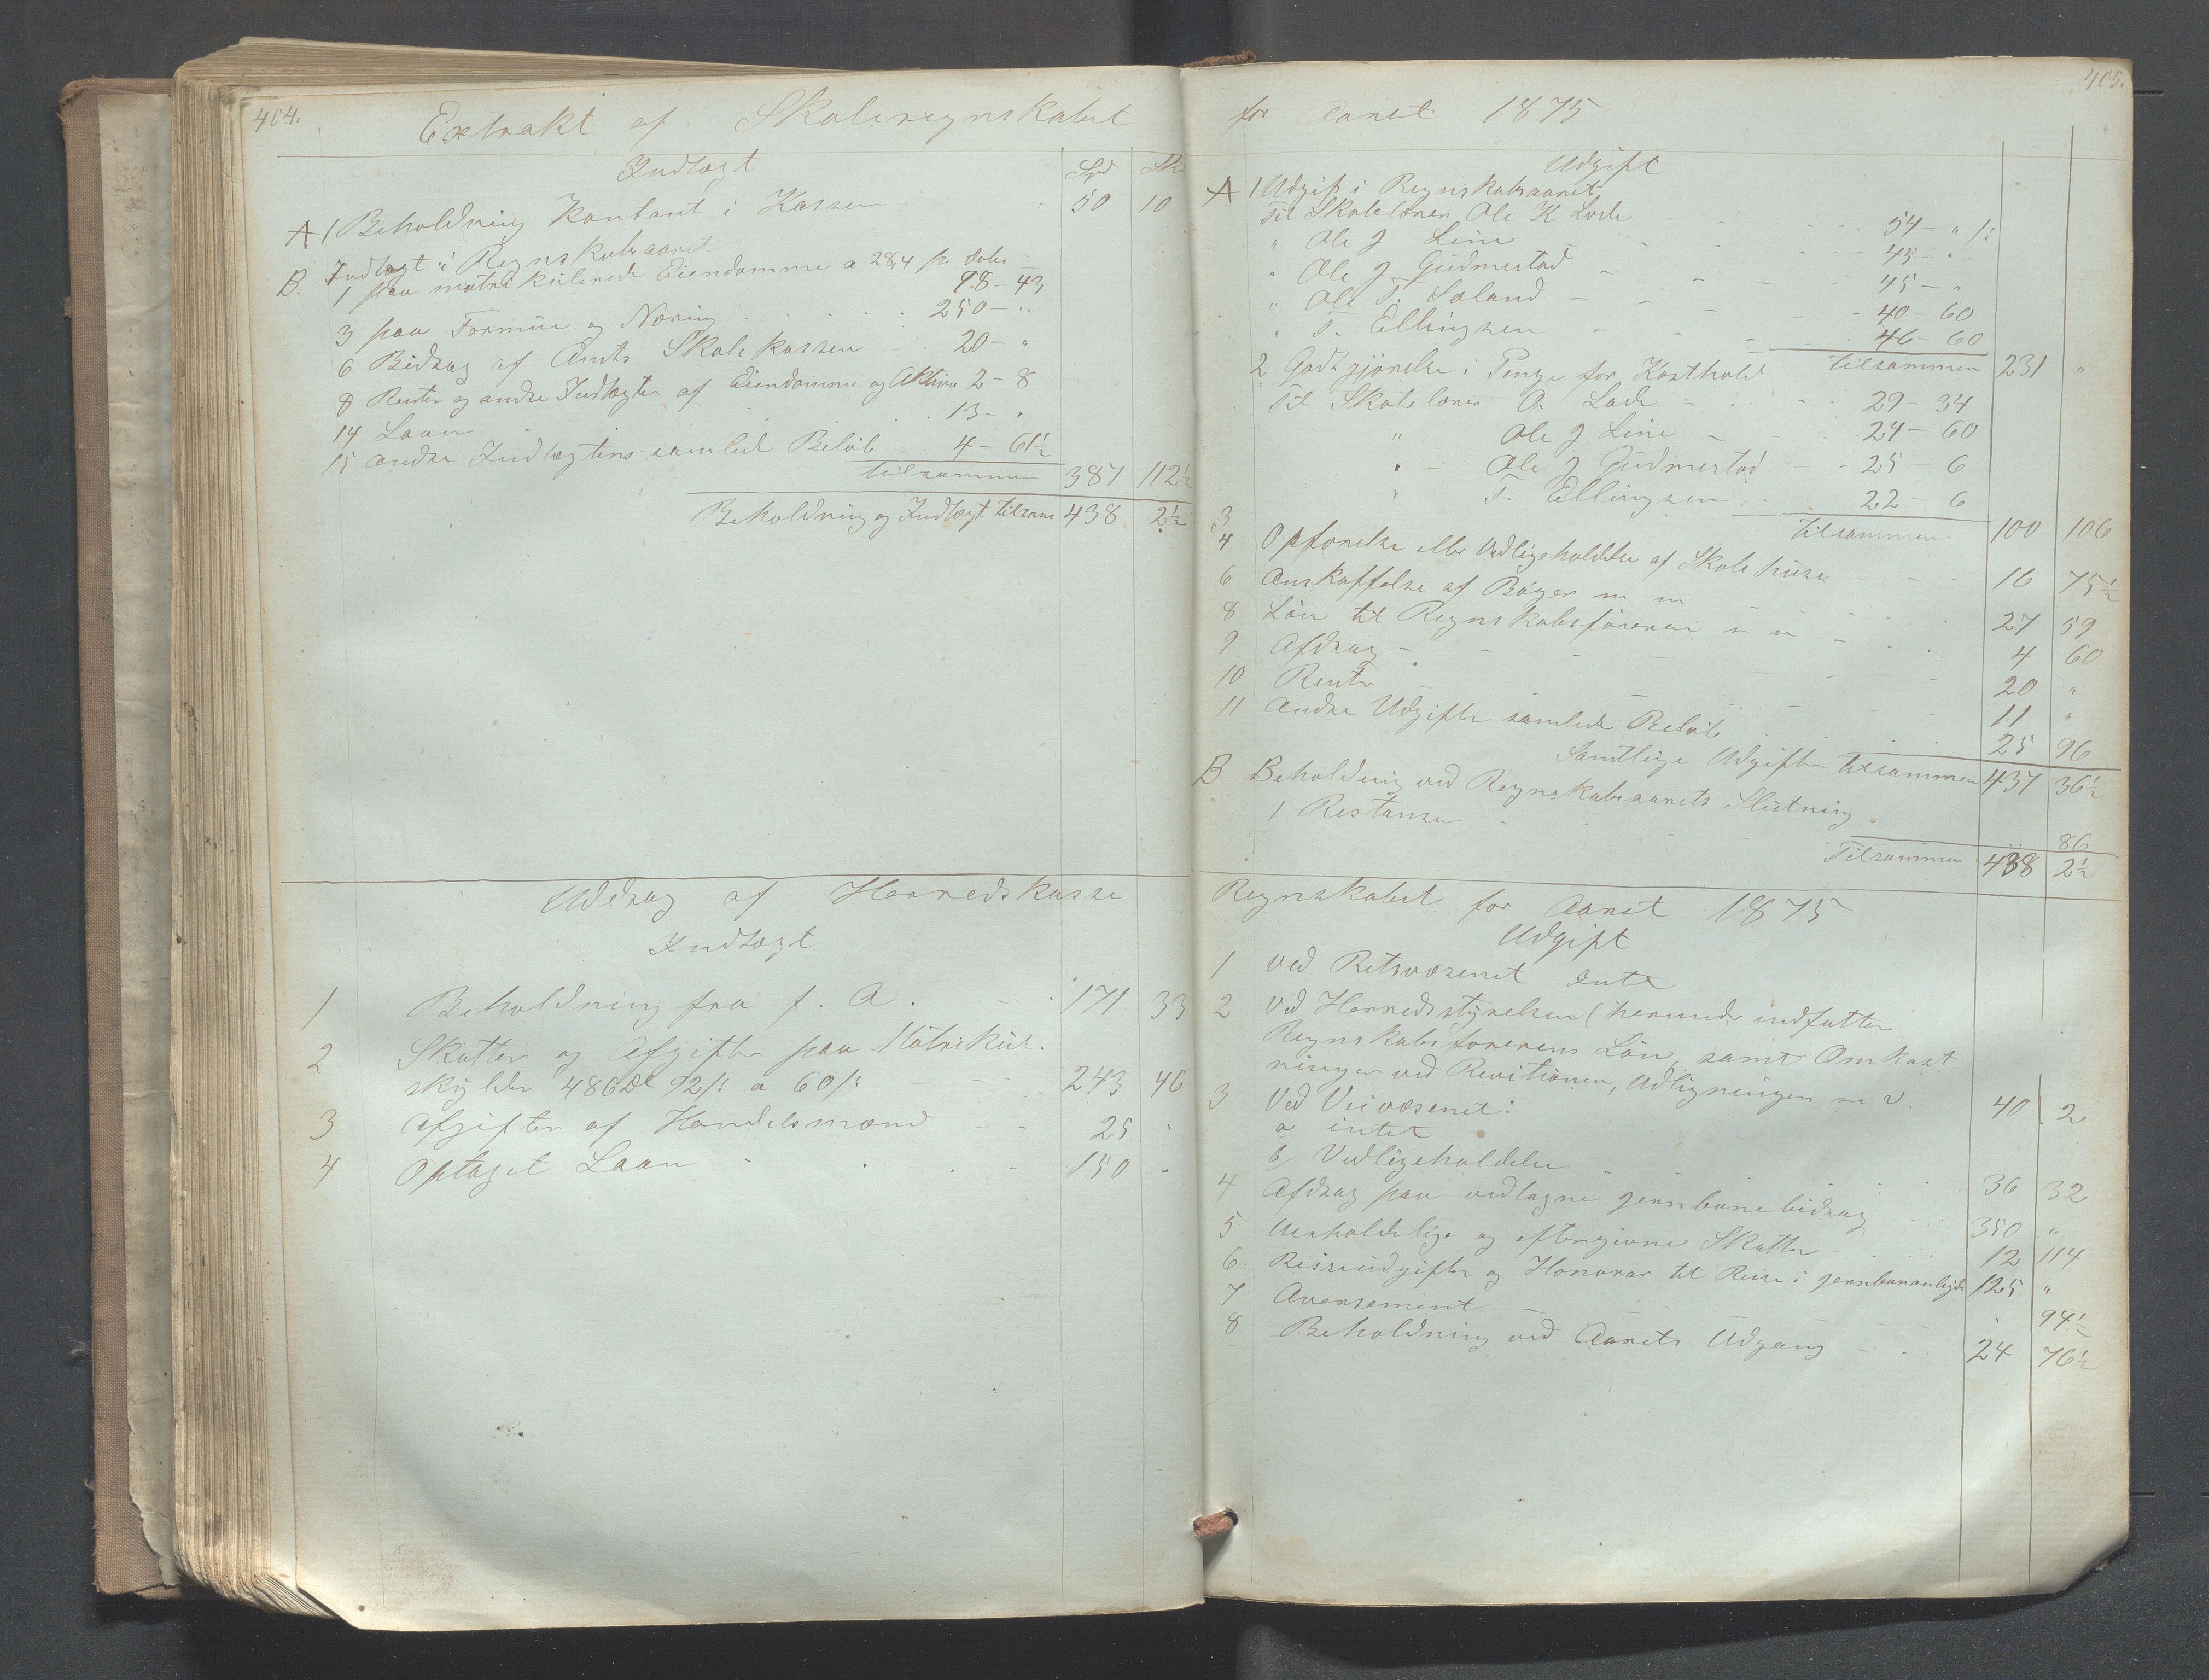 404.
Extrakt af Skoleregnskabet
Indtægt
Spd Sk.
A 1 Beholdning Kontant i Kassen 50 10
B. Indtægt i Regnskabsaaret
1 paa matrikulerede Eiendomme a 28,4 pr daler 98 - 43
3 paa Formue og Næring 250 - "
6 Bidrag af Amts Skolekassen 20 - "
8 Renter og andre Indtægter af Eiendomme og Aktiva 2 - 8
14 Laan 13 - "
15 andre Indtægters samlede Beløb 4 - 61½
tilsammen 387 112½
Beholdning og Indtægt tilsamn 438 2½
Uddrag af Herredskasse
Indtægt
1 Beholdning fra f. A. 171 33
2 Skatter og Afgifter paa Matrikül.
skylden 486 Dl 92/: a 60/: 243 46
3 Afgifter af Handelsmænd 25 "
4 Optaget Laan 150 "
405.
for Aaret 1875
Udgift
A 1 Udgift i Regnskabsaaret
Til Skolelærer Ole K Lode 54 - " /:
" Ole J Line 45 - "
" Ole J Gudmestad 45 - "
" Ole T. Sæland 40 - 60
" T. Ellingsen 46 - 60
tilsammen 231 "
2 Godtgjørelse i Penge for Kosthold
Til Skolelærer O. Lode 29 - 34
" Ole J Line 24 - 60
" Ole J Gudmestad 25 - 6
" T. Ellingsen 22 - 6
tilsammen 100 106
3
4 Opførelse eller Vedligeholdelse af Skolehuse 16 75½
6 Anskaffelse af Bøger m m 27 59
8 Løn til Regnskabsføreren m m 4 60
9 Afdrag 20 "
10 Rente 11 "
11 Andre Udgifters samlede Beløb 25 96
Samtlige Udgifter tilsammen 437 36½
B Beholdning ved Regnskabsaarets Slutning
1 Restanser " 86
Tilsammen 438 2½
Regnskabet for Aaret 1875
Udgift
1 Ved Retsvæsenet Intet
2 Ved Herredsstyrelsen (herunder indfattes
Regnskabsførerens Løn, samt Omkost
ninger ved Revitionen, Udligningen m v 40 2
3 Ved Veivæsenet:
a intet
b Vedligeholdelse 36 32
4 Afdrag paa vedtagne jernbanebidrag 350 "
5 Uerholdelige og eftergivne Skatter 12 114
6. Reiseudgifter og Honorar til Reise i jernbaneanligde 125 "
7 Aversement " 94½
8 Beholdning ved Aarets Udgang 24 76½